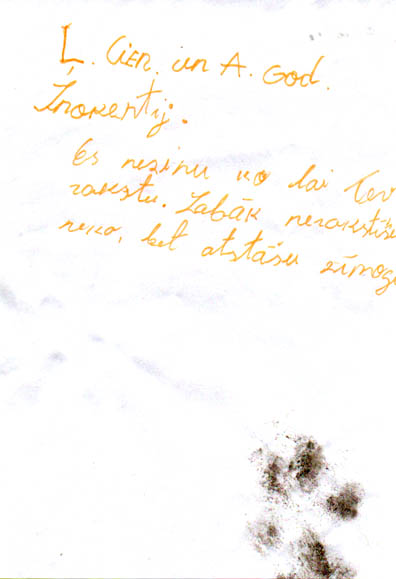 Ļ. Cien. un A. God.
Inokentij.
Es nezinu ko lai Tev
rakstu. Labāk nerakstīšu
neko, bet atstāšu zīmogu